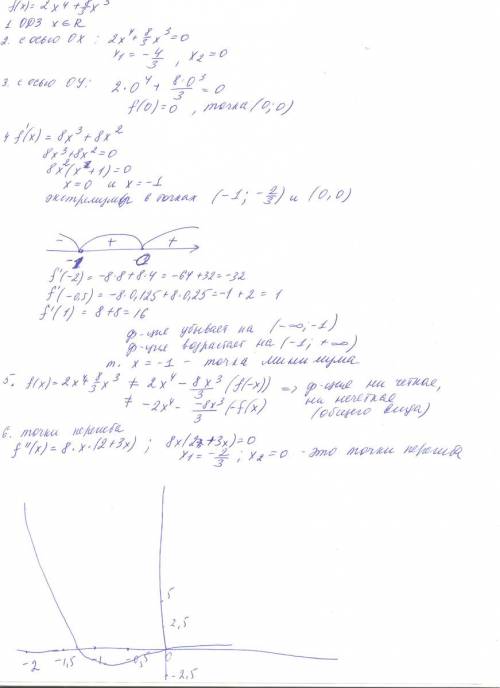 f(x) = 2x⁴ + 8/3 x³
1 ОДЗ x∈R
2. с осью OX : 2x⁴ + 8/3 x³ = 0
x₁ = -4/3 , x₂ = 0
3. с осью OY: 2·0⁴ + 8·0³/3 = 0
f(0) = 0 , точка (0; 0)
4 f'(x) = 8x³ + 8x²
8x³ + 8x² = 0
8x²(x + 1) = 0
x = 0 и x = -1
экстремумы в точках (-1; -2/3) и (0, 0)
- + +
-1 0
f'(-2) = -8·8 + 8·4 = -64 + 32 = -32
f'(-0,5) = -8·0,125 + 8·0,25 = -1 + 2 = 1
f'(1) = 8 + 8 = 16
ф-ция убывает на (-∞; -1)
ф-ция возрастает на (-1; +∞)
т. x = -1 - точка минимума
5. f(x) = 2x⁴ 8/3 x³ ≠ 2x⁴ - 8x³/3 (f(-x)) => ф-ция ни четная,
≠ -2x⁴ - -8x³/3 (-f(x) ни нечётная
(общего вида)
6. точки перегиба
f''(x) = 8·x·(2+3x) ; 8x(2+3x) = 0
x₁ = -2/3 ; x₂ = 0 - это точки перегиба
5
2,5
-2 -1,5 -1 -0,5 0
-2,5